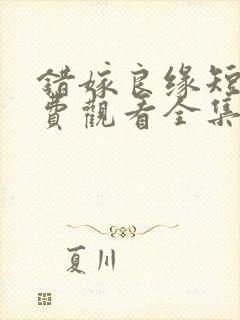 错嫁良缘短
費觀看全集
夏川